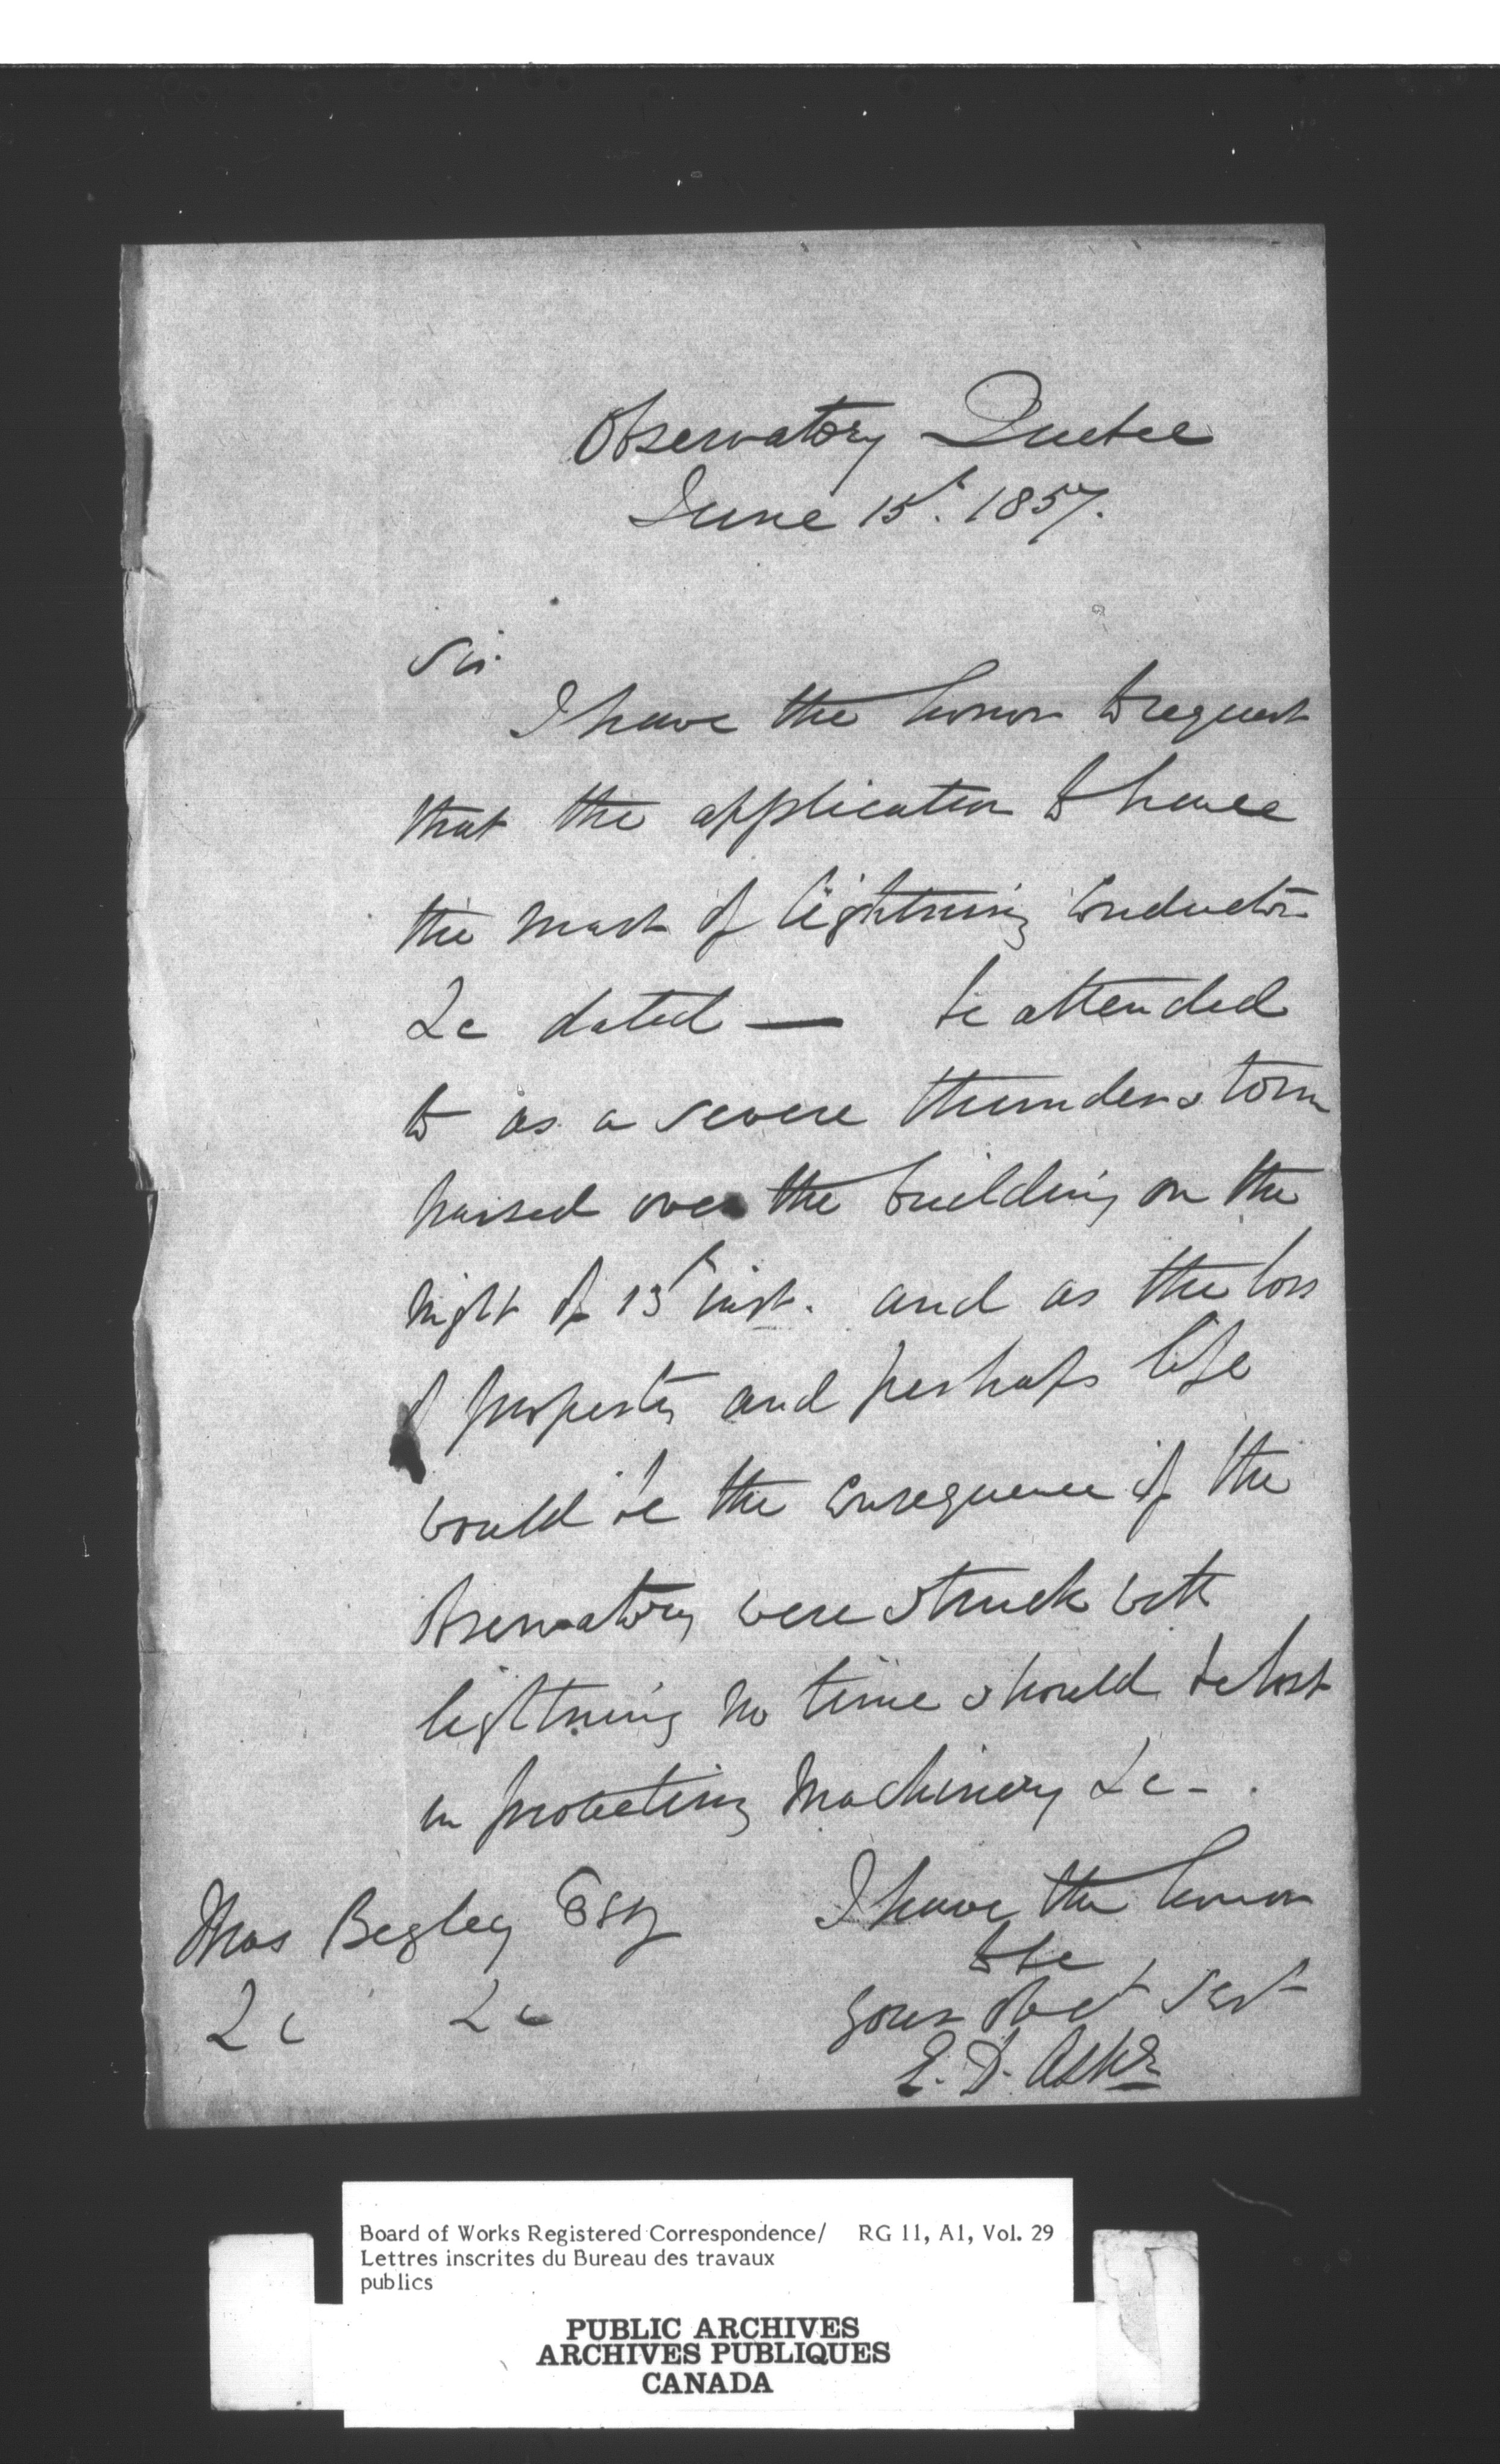 Observatory Quebec
June 15t. 1857.
Sir
I have the honor to request
that the application to have
the mast & lightning conductor
&c dated — be attended
to as a severe thunderstorm
passed over the building on the
night of 13t inst. and as the loss
of property and perhaps life
would be the consequence if the
Observatory were struck with
lightning no time should be lost
in protecting Machinery &c - .
I have the honor
to be
your obedt sert
E. D. Ashe
Thos Begley Esq
&c &c
Board of Works Registered Correspondence/ RG 11, A1, Vol. 29
Lettres inscrites du Bureau des travaux
publics
PUBLIC ARCHIVES
ARCHIVES PUBLIQUES
CANADA